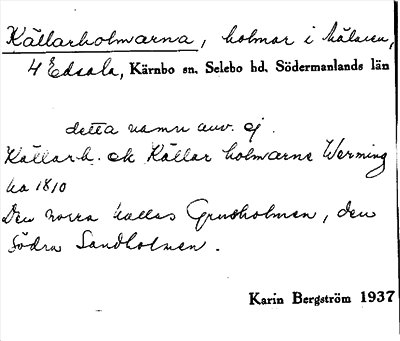 Källarholmarna, holmar i Mälaren,
4 Edsala, Kärnbo sn. Selebo hd. Södermanlands län
detta namn anv. ej.
Källarh. ok Källar holmarne Werming
ka 1810
Den norra kallas Grusholmen, den
södra Sandholmen.
Karin Bergström 1937